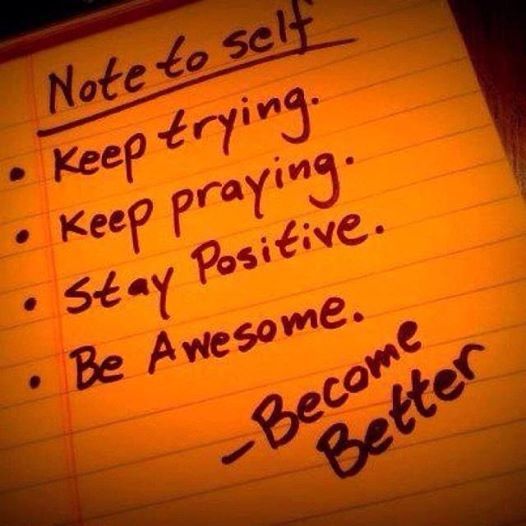 Note to self
• Keep trying.
• Keep praying.
• Stay Positive.
• Be Awesome.
- Become
Better